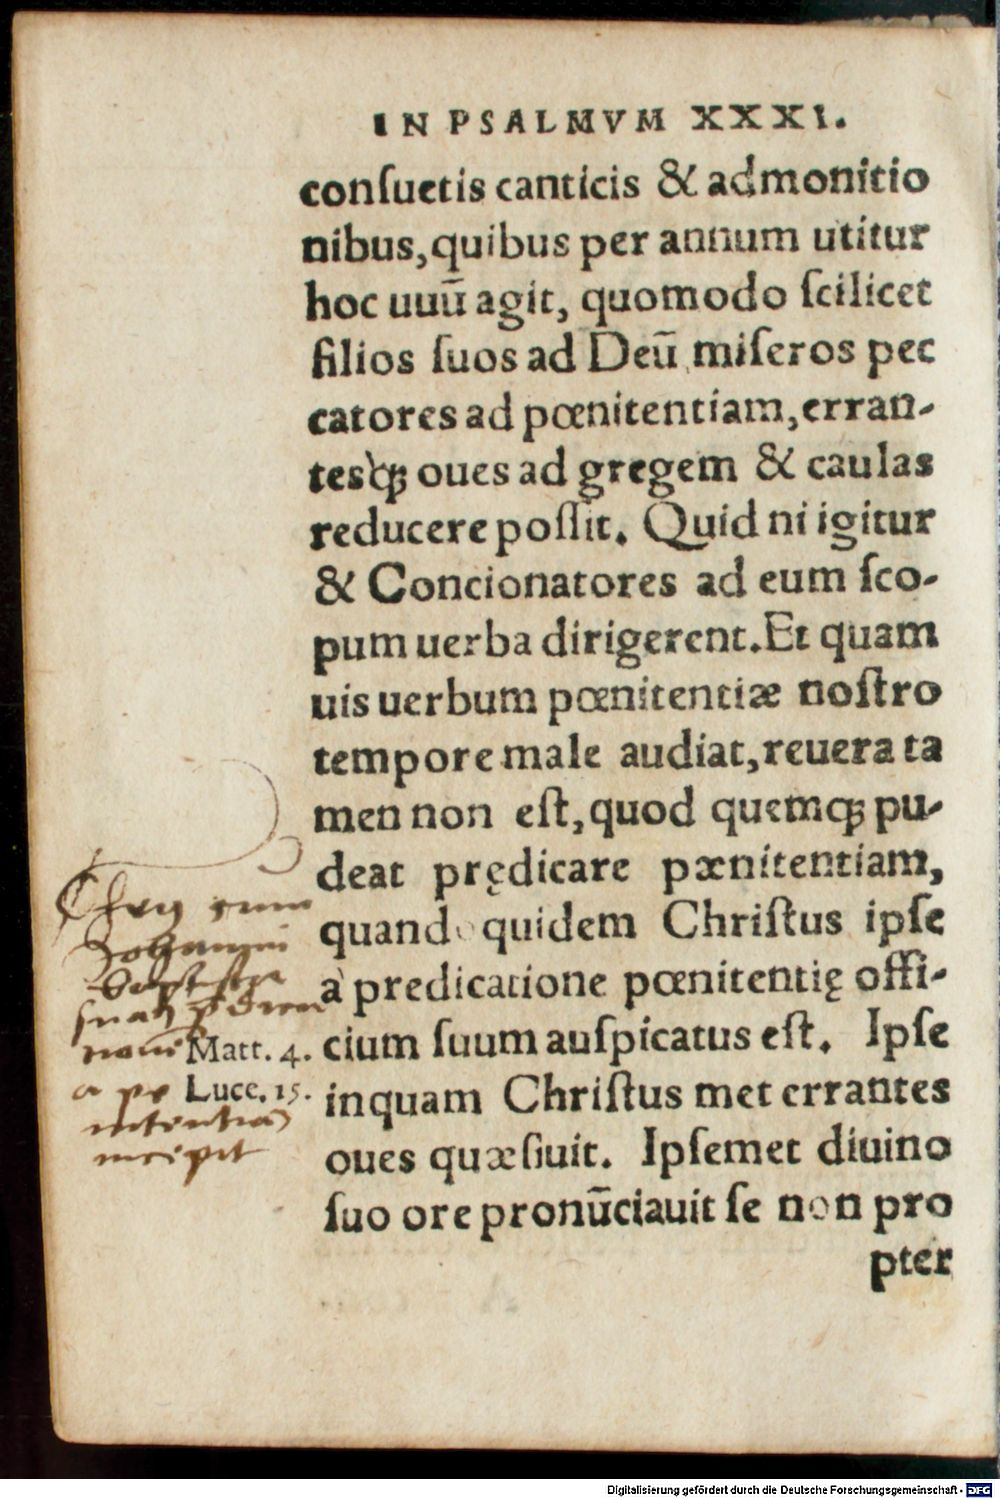 IN PSALMVM XXXI.
conſuetis canticis & admonitio
nibus, quibus per annum utitur
hoc uuū agit, quomodo ſcilicet
filios ſuos ad Deū miſeros pec
catores ad pœnitentiam, erran-
tesq́ꝫ oues ad gregem & caulas
reducere poſſit. Quid ni igitur
& Concionatores ad eum ſco-
pum uerba dirigerent. Et quam
uis uerbum pœnitentiæ noſtro
tempore male audiat, reuera ta
men non eſt, quod quemqꝫ pu-
deat prędicare pænitentiam,
quando quidem Chriſtus ipſe
à predicatione pœnitentię offi-
cium ſuum auſpicatus eſt. Ipſe
inquam Chriſtus met errantes
oues quæſiuit. Ipſemet diuino
ſuo ore pronūciauit ſe non pro
pter
cum
Johanni
Baptista
Matt. 4.
a pe
Luce. 15.
nitentia
incepit
Digitalisierung gefördert durch die Deutsche Forschungsgemeinschaft - DFG